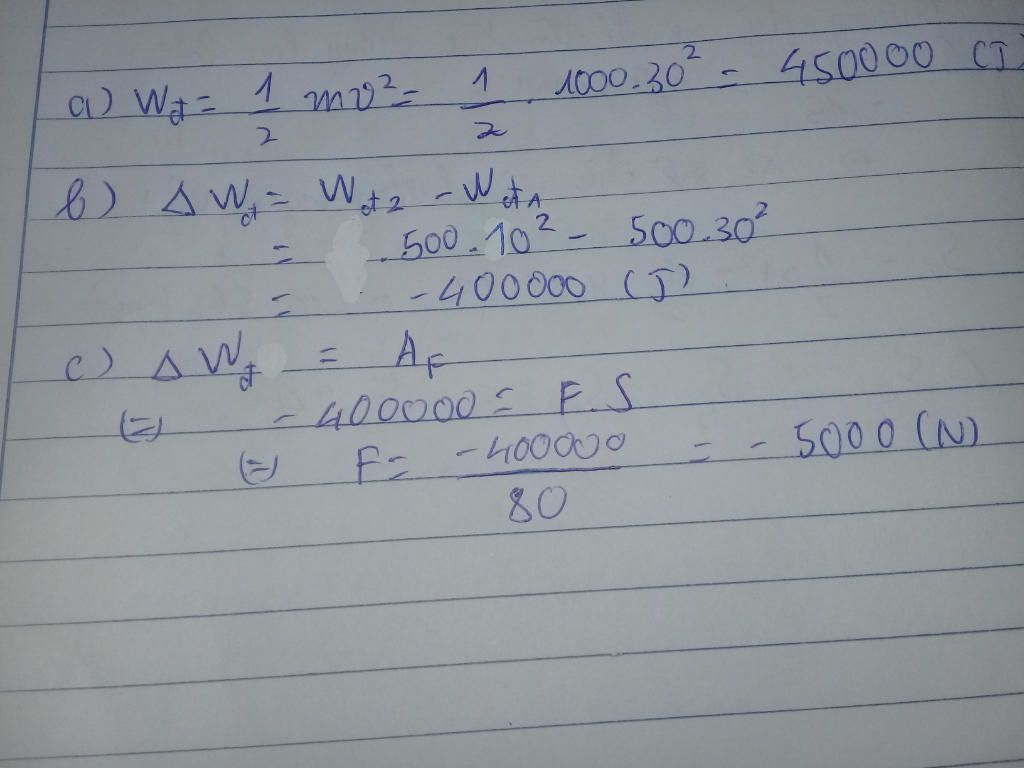 a) Wđ = 1/2 mv² = 1/2 . 1000.30² = 450000 (J)
b) Δ Wđ = Wđ2 - Wđ1
= .500.10² - 500.30²
= -400000 (J)
c) Δ Wđ = A_F
(=) -400000 = F.S
(=) F = -400000/80 = -5000 (N)